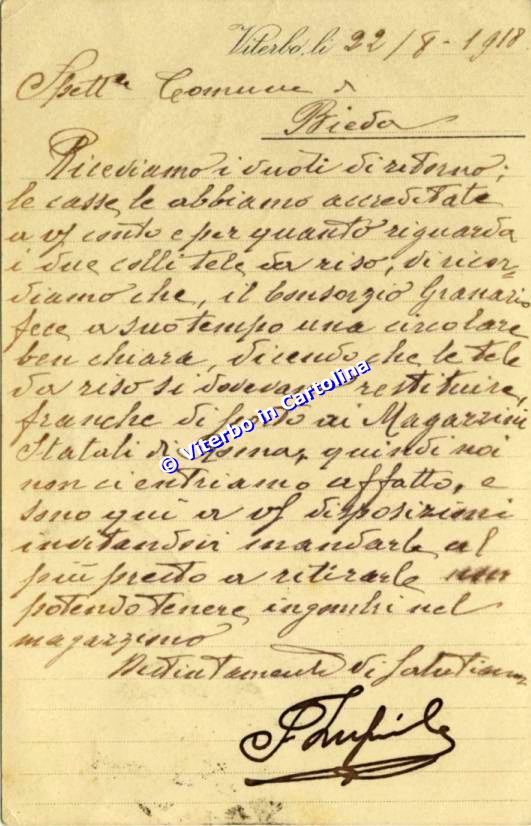 Viterbo, li 22/8-1918
Spett.e Comune di
Bieda
Riceviamo i vuoti di ritorno;
le casse, le abbiamo accreditate
a vs/ conto e per quanto riguarda
i due colli tele da riso, vi ricor=
diamo che, il Consorzio Granario
fece a suo tempo una circolare
ben chiara, dicendo che le tele
da riso si dovevano restituire,
franche di porto ai Magazzini
Statali di Roma, quindi noi
non ci entriamo affatto, e
sono quì a vs/ disposizioni
invitandovi mandarle al
più presto a ritirarle non
potendo tenere ingombri nel
magazzino
Distintamente Vi Salutiamo
© Viterbo in Cartolina